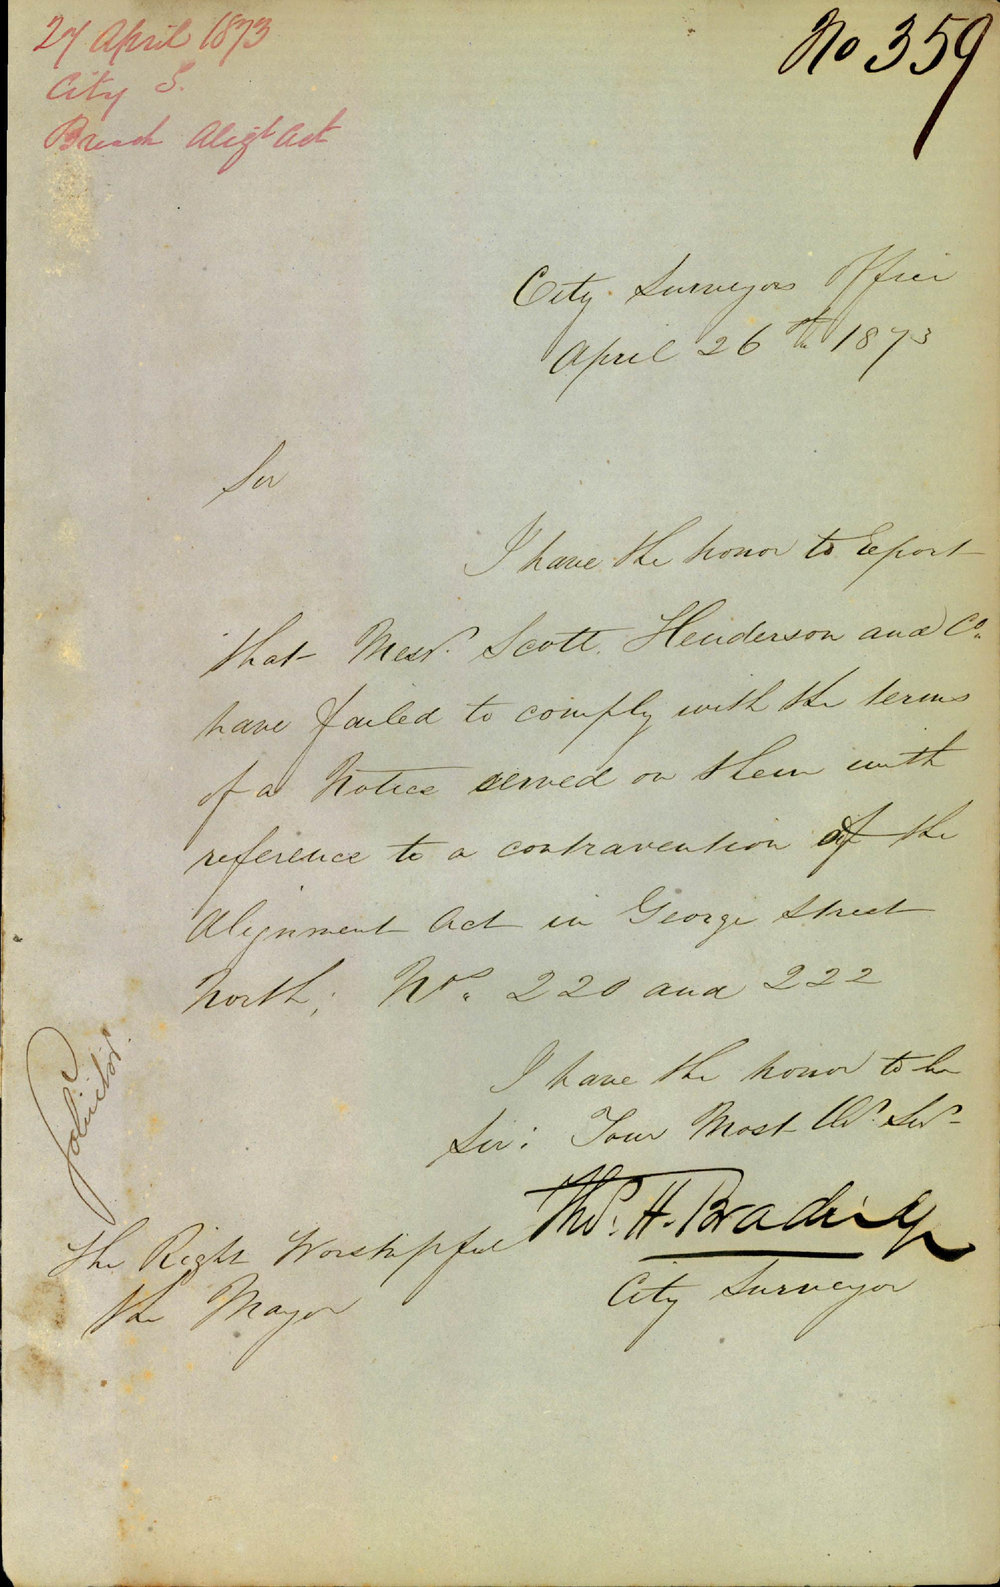 27 April 1873
City S.
Breach Alig^t Act
No 359
City Surveyors Office
April 26th 1873
Sir
I have the honor to Report
that Mess^rs. Scott, Henderson and Co.
have failed to comply with the terms
of a Notice served on them with
reference to a contravention of the
Alignment Act in George Street
North; Nos. 220 and 222
I have the honor to be
Sir: Your Most Ob^t. Ser^t.
Thos. H. Bradridge
City Surveyor
Solicitor.
The Right Worshipful
the Mayor